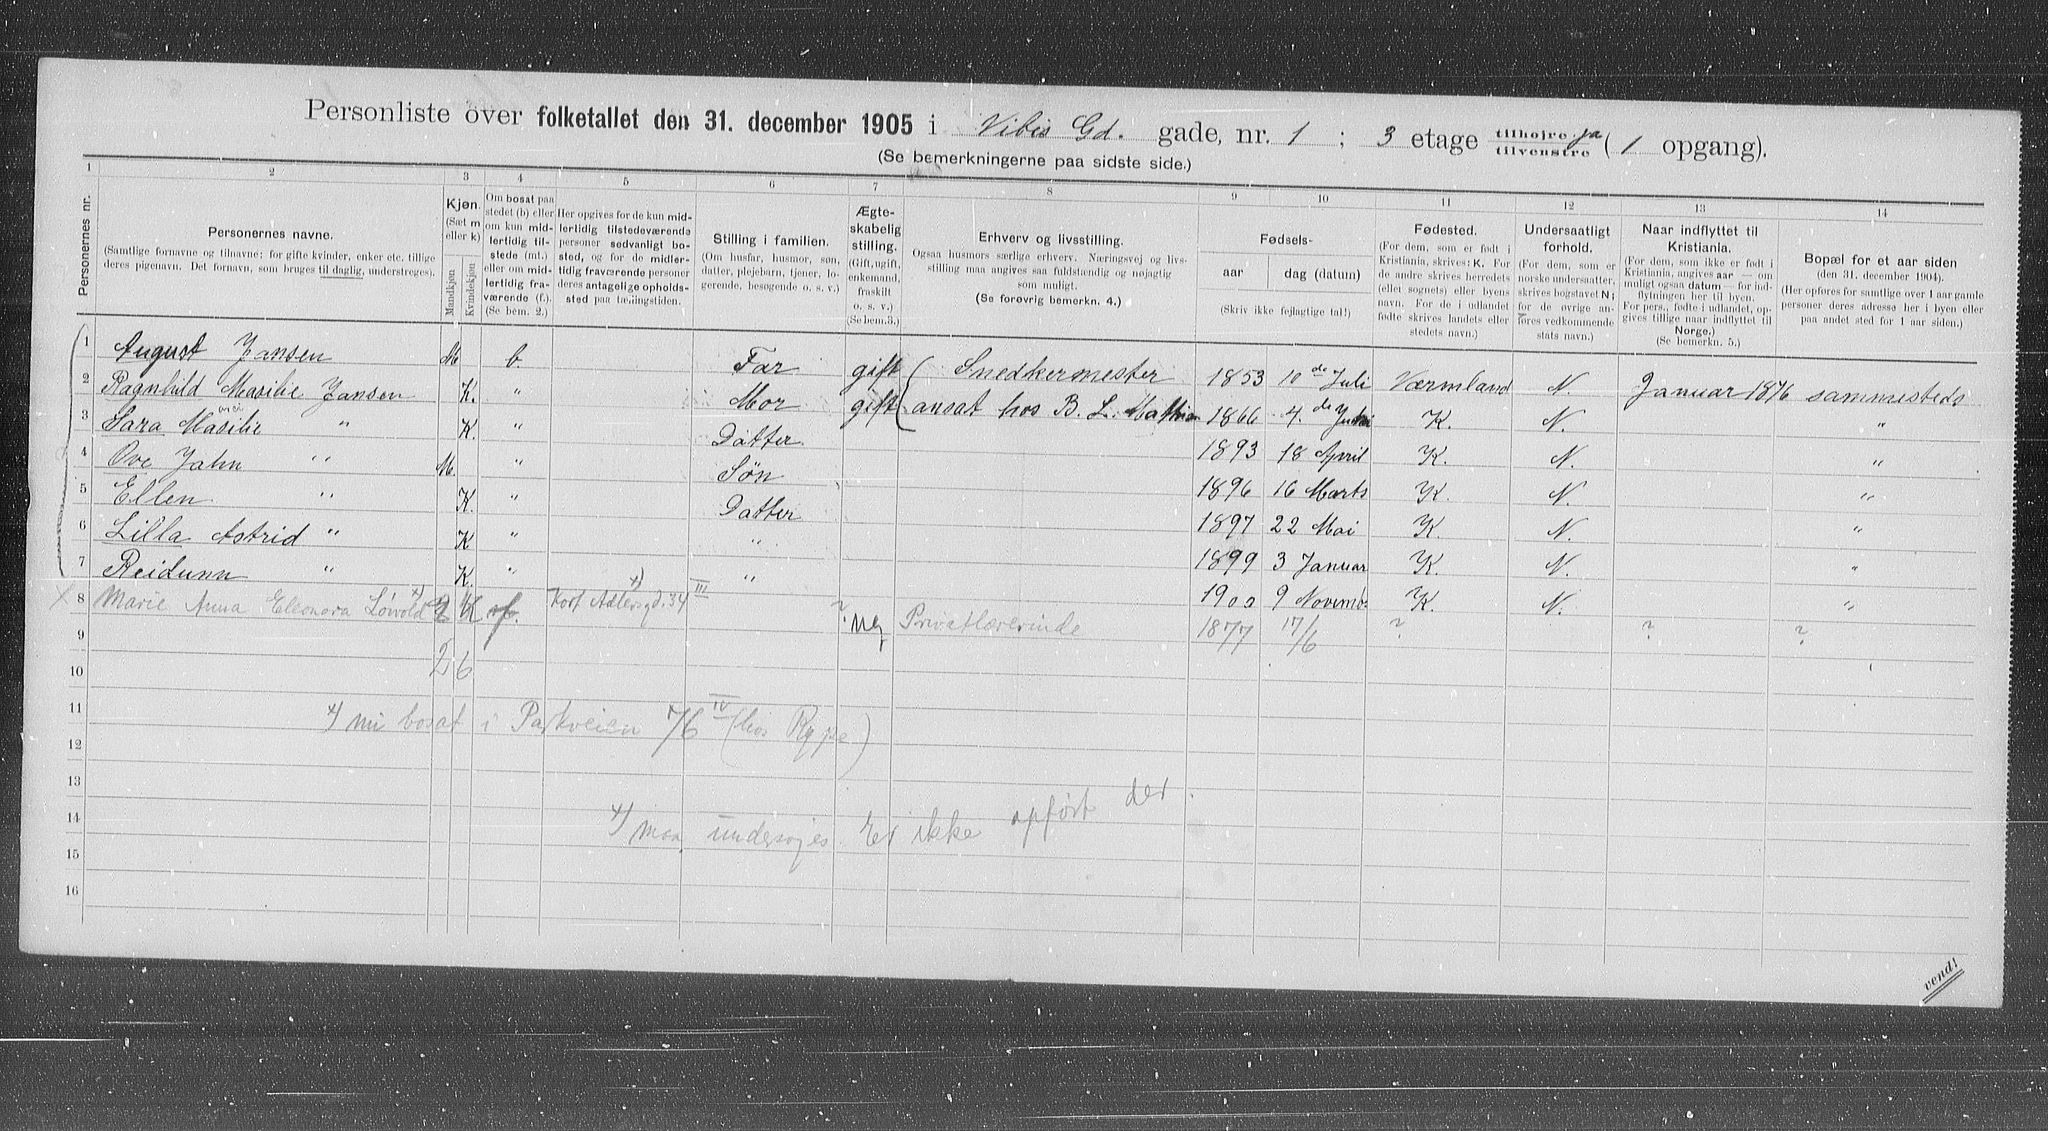 Personliste over folketallet den 31. december 1905 i Vibes Gd. gade, nr. 1 ; 3 etage tilhøjre ja / tilvenstre ( 1 opgang).
(Se bemerkningerne paa sidste side.)
1 2 3 4 5 6 7 8 9 10 11 12 13 14
Personernes nr.
Personernes navne.
(Samtlige fornavne og tilnavne; for gifte kvinder, enker etc. tillige deres pigenavn. Det fornavn, som bruges til daglig, understreges).
Kjøn.
(Sæt m eller k)
Mandkjøn
Kvindekjøn
Om bosat paa stedet (b) eller om kun midlertidig tilstede (mt.) eller om midlertidig fraværende (f.) (Se bem. 2.)
Her opgives for de kun midlertidig tilstedeværende personer sedvanligt bosted, og for de midlertidig fraværende personer deres antagelige opholdssted paa tællingstiden.
Stilling i familien.
(Om husfar, husmor, søn, datter, plejebarn, tjener, logerende, besøgende o. s. v.)
Ægteskabelig stilling.
(Gift, ugift, enkemand, fraskilt o. s. v.)
(Se bem.3.)
Erhverv og livsstilling.
Ogsaa husmors særlige erhverv. Næringsvej og livsstilling maa angives saa fuldstændig og nøjagtig som muligt.
(Se forøvrig bemerkn. 4.)
Fødsels-
aar
dag (datum)
(Skriv ikke fejlagtige tal!)
Fødested.
(For dem, som er født i Kristiania, skrives: K. For de andre skrives herredets (eller sognets) eller byens navn. For de i udlandet fødte skrives landets eller stedets navn.)
Undersaatligt forhold.
(For dem, som er norske undersaatter, skrives bogstavet N; for de øvrige anføres vedkommende stats navn.)
Naar indflyttet til Kristiania.
(For dem, som ikke er født i Kristiania, angives aar — om muligt ogsaa datum — for indflytningen her til byen. For pers., fødte i udlandet, opgives tillige naar indflyttet til Norge.)
(Se bemerkn. 5.)
Bopæl for et aar siden
(den 31. december 1904).
(Her opføres for samtlige over 1 aar gamle personer deres adresse her i byen eller paa andet sted for 1 aar siden.)
1 August Jansen M b. Far gift ( Snedkermester 1853 10de Juli Værmland N. Januar 1876 sammesteds
2 Ragnhild Masilie Jansen K. " Mor gift ( ansat hos B. L. 1866 4.de K. N. "
3 Sara Masilie " K. " Datter 1893 18 April K. N. "
4 Ove Jahn " M. " Søn 1896 16 Marts K. N. "
5 Ellen " K " Datter 1897 22 Mai K. N. "
6 Lilla Astrid " K " " 1899 3 Januar K. N. "
7 Reidunn " K. " " 1900 9 Novemb. K. N. "
X 8 Marie Anna Eleonora Løvold K Kort Adlersgd. 34 III ? Privatlærerinde 1877 17/6 ? ? ?
9
2 6
10
11
x) nu bosat i Parkveien 76 IV (hos Rype)
12
13
14
x) maa undersøjes. Er ikke opført der.
15
16
vend!